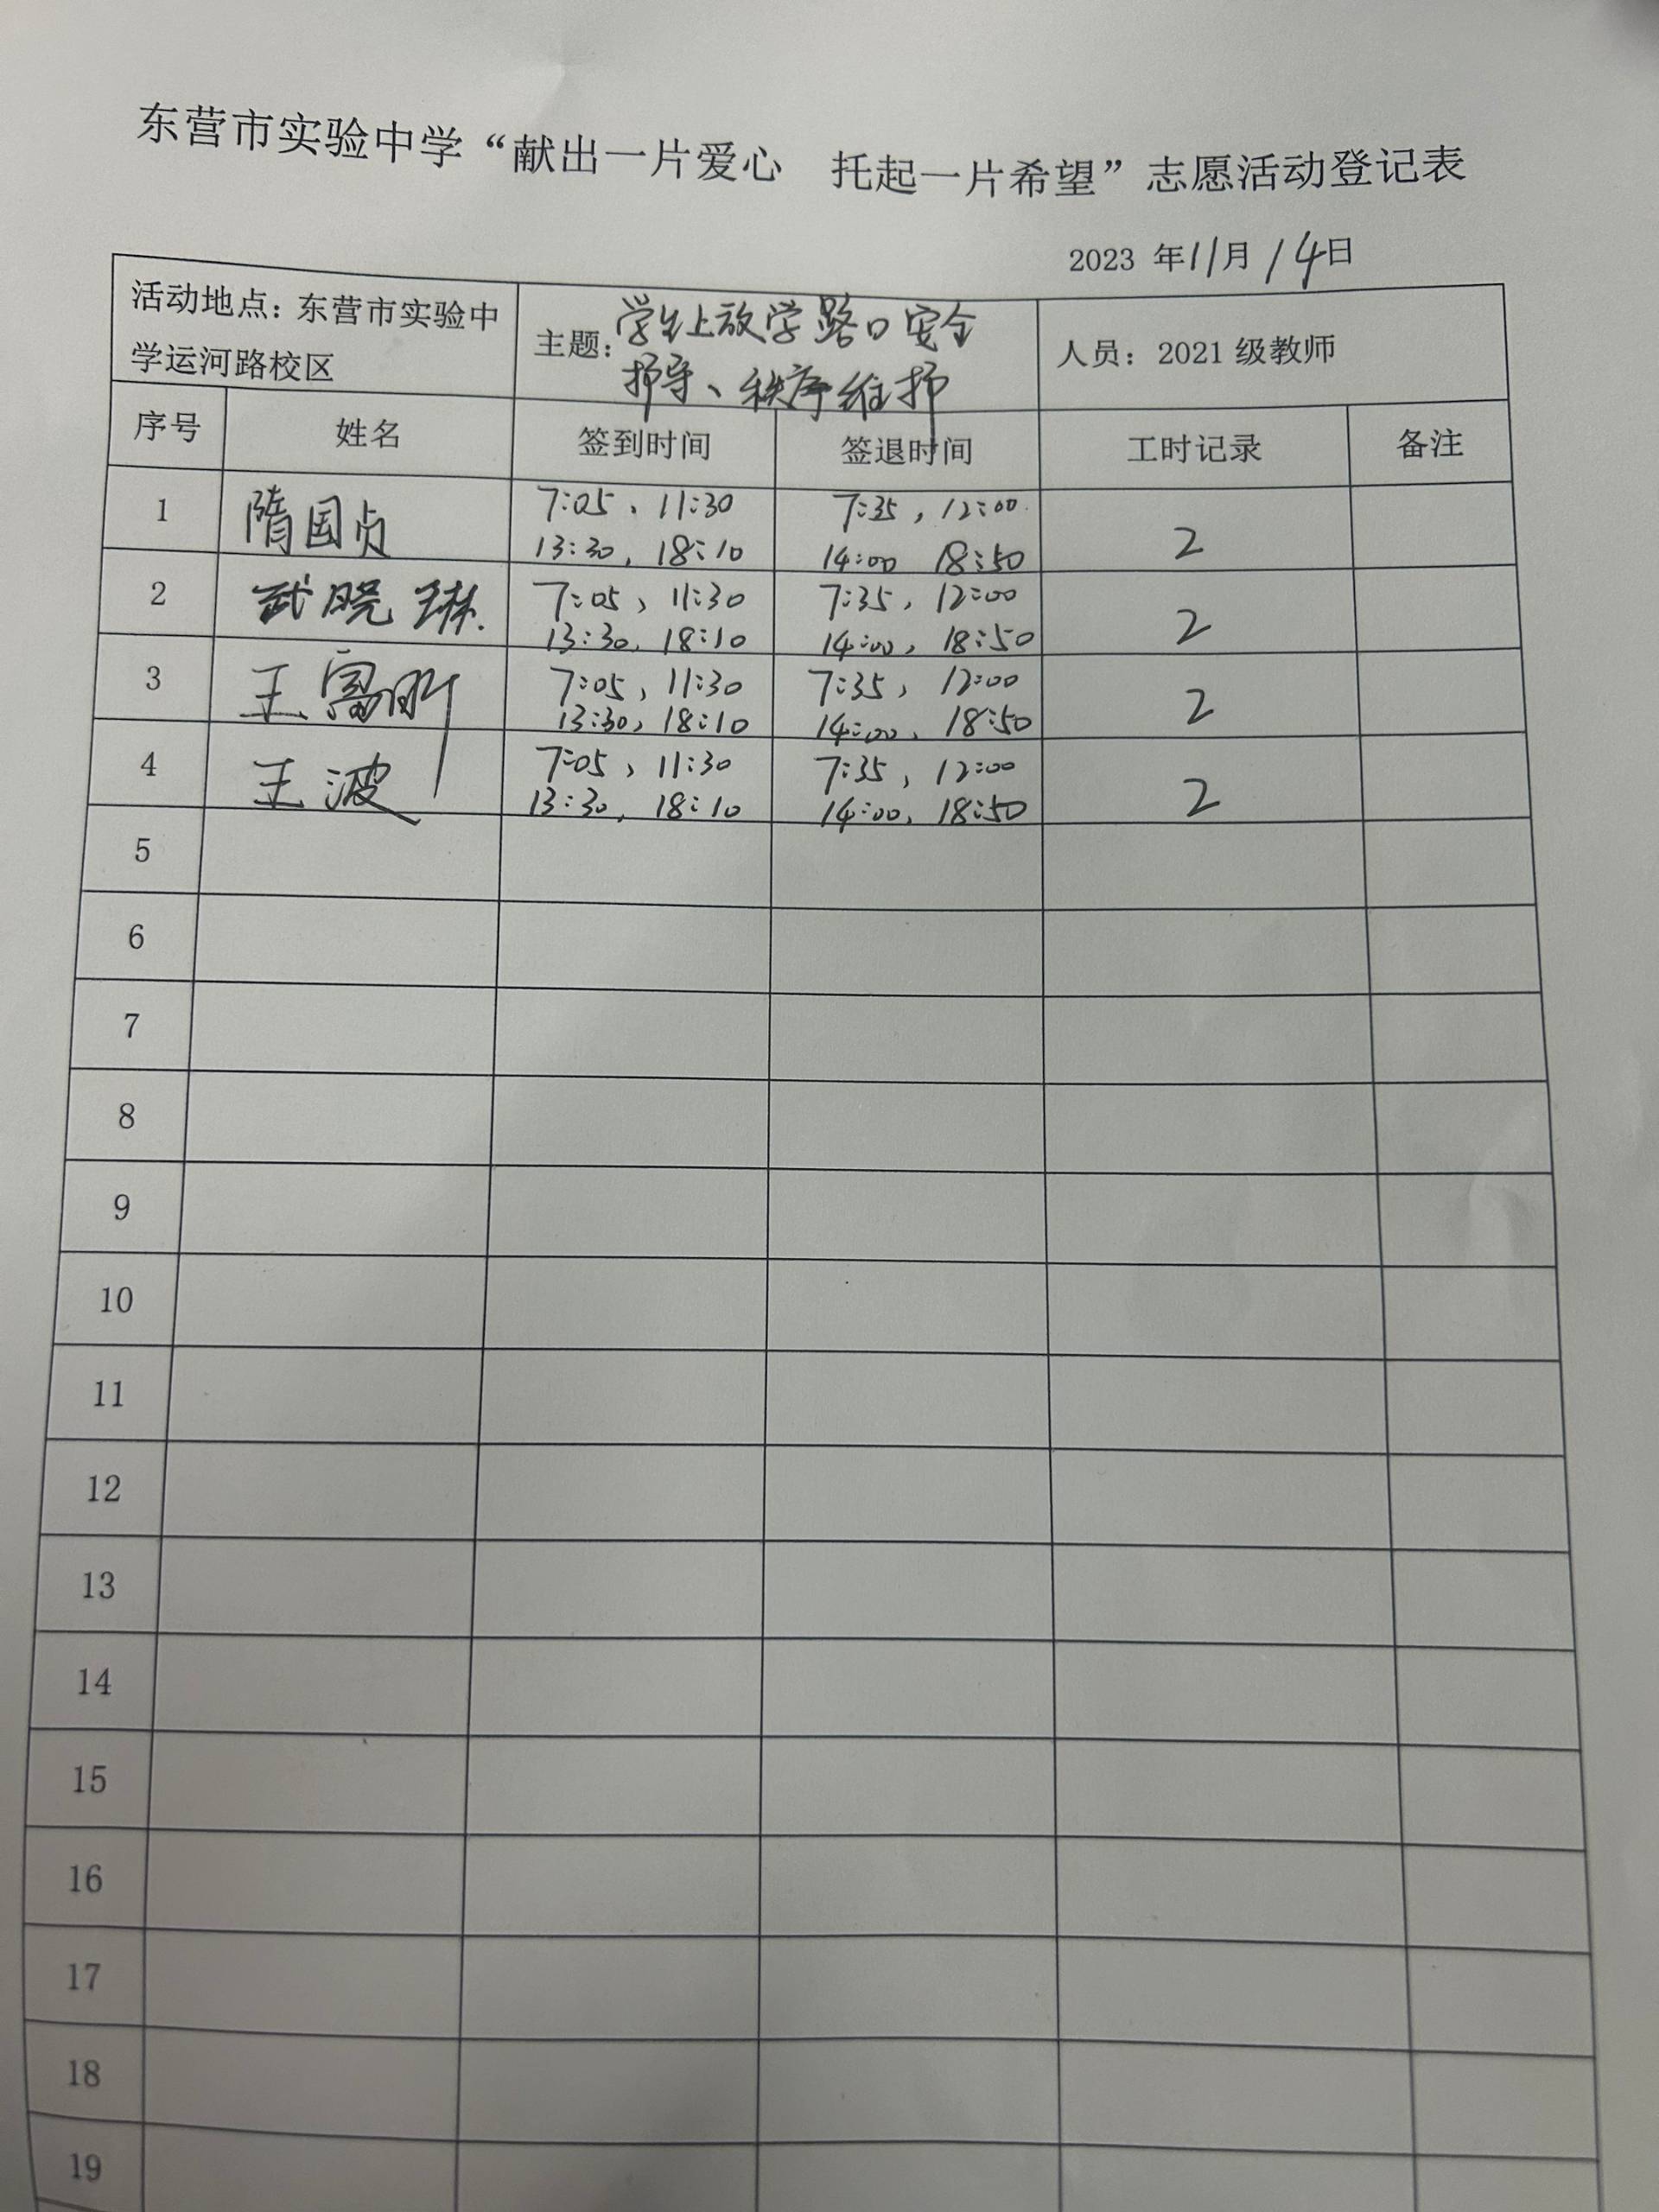 东营市实验中学“献出一片爱心 托起一片希望”志愿活动登记表
2023 年11月14日
活动地点：东营市实验中
学运河路校区
主题：学生上放学路口安全
护导、秩序维护
人员：2021 级教师
序号 姓名 签到时间 签退时间 工时记录 备注
1 隋国贞 7:05、11:30 7:35，12:00 2
13:30，18:10 14:00 18:50
2 武晓琳 7:05，11:30 7:35，12:00 2
13:30，18:10 14:00，18:50
3 王 7:05，11:30 7:35，12:00 2
13:30，18:10 14:00，18:50
4 王波 7:05，11:30 7:35，12:00 2
13:30，18:10 14:00，18:50
5
6
7
8
9
10
11
12
13
14
15
16
17
18
19